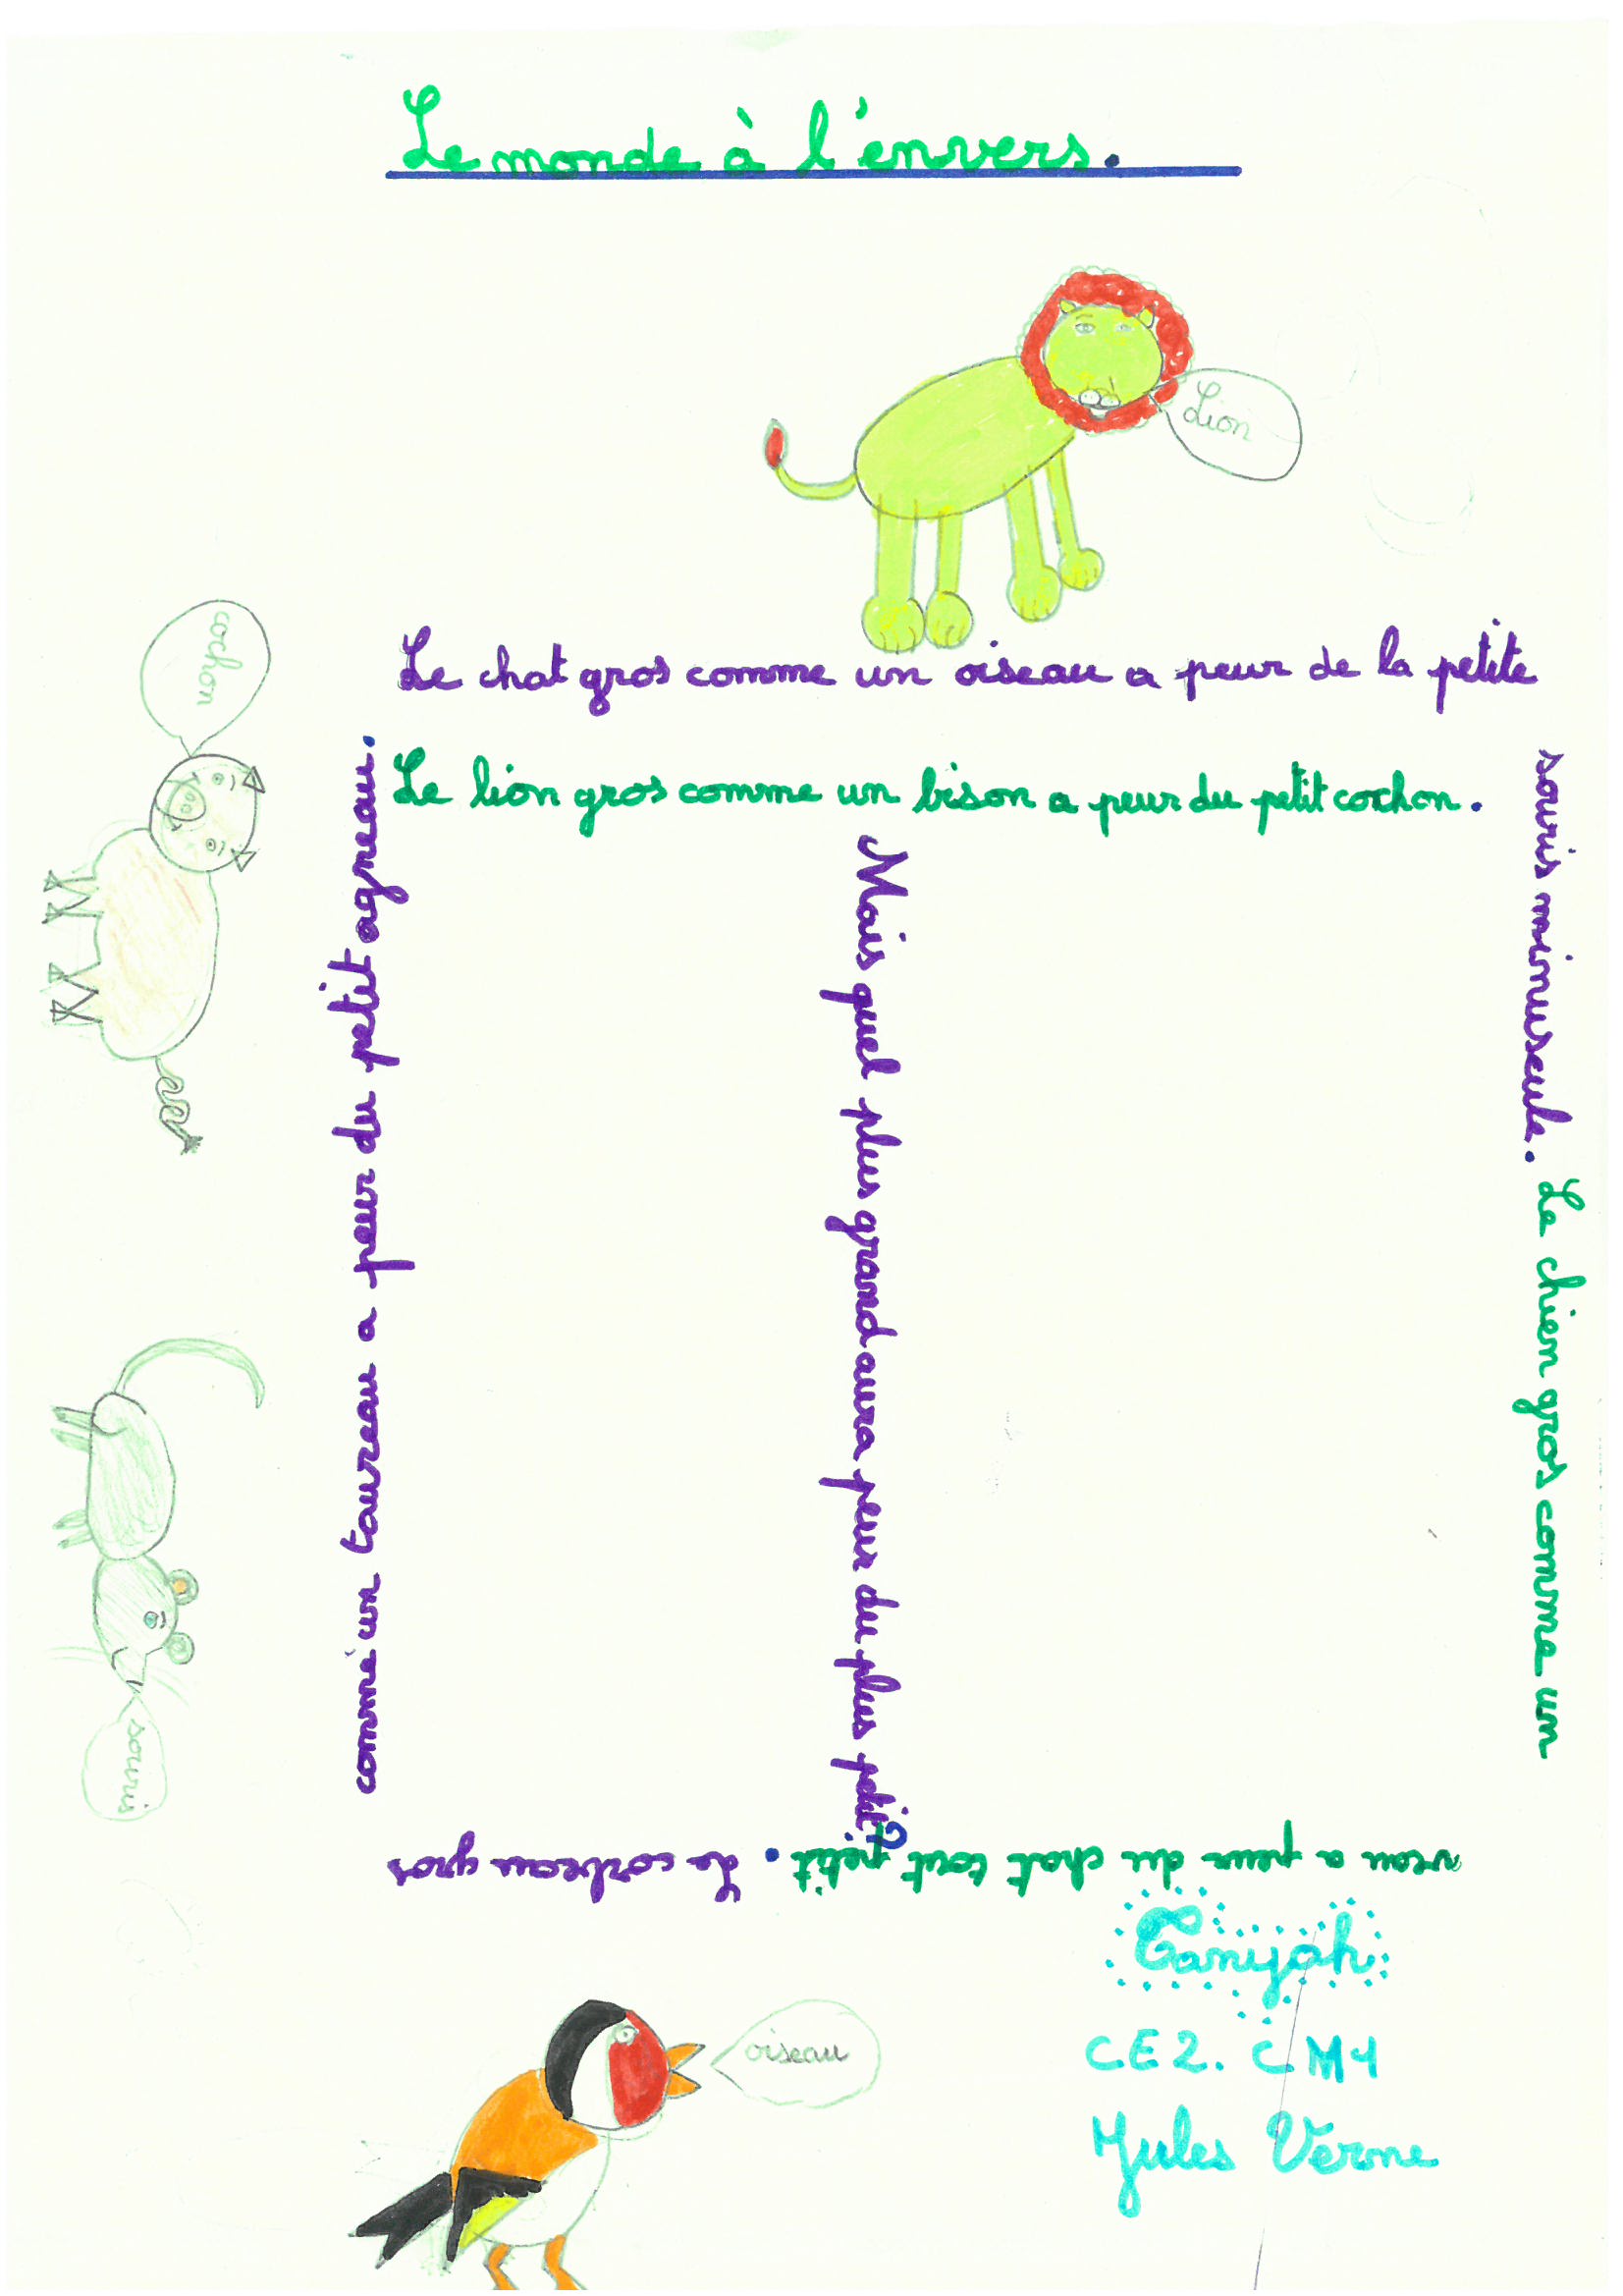 Le monde à l'envers.
Lion
cochon
Le chat gros comme un oiseau a peur de la petite
souris minuscule. Le chien gros comme un
veau a peur du chat tout petit. Le corbeau gros
comme un taureau a peur du petit agneau.
Le lion gros comme un bison a peur du petit cochon.
Mais quel plus grand aura peur du plus petit?
souris
oiseau
Tanijah
CE2. CM1
Jules Verne